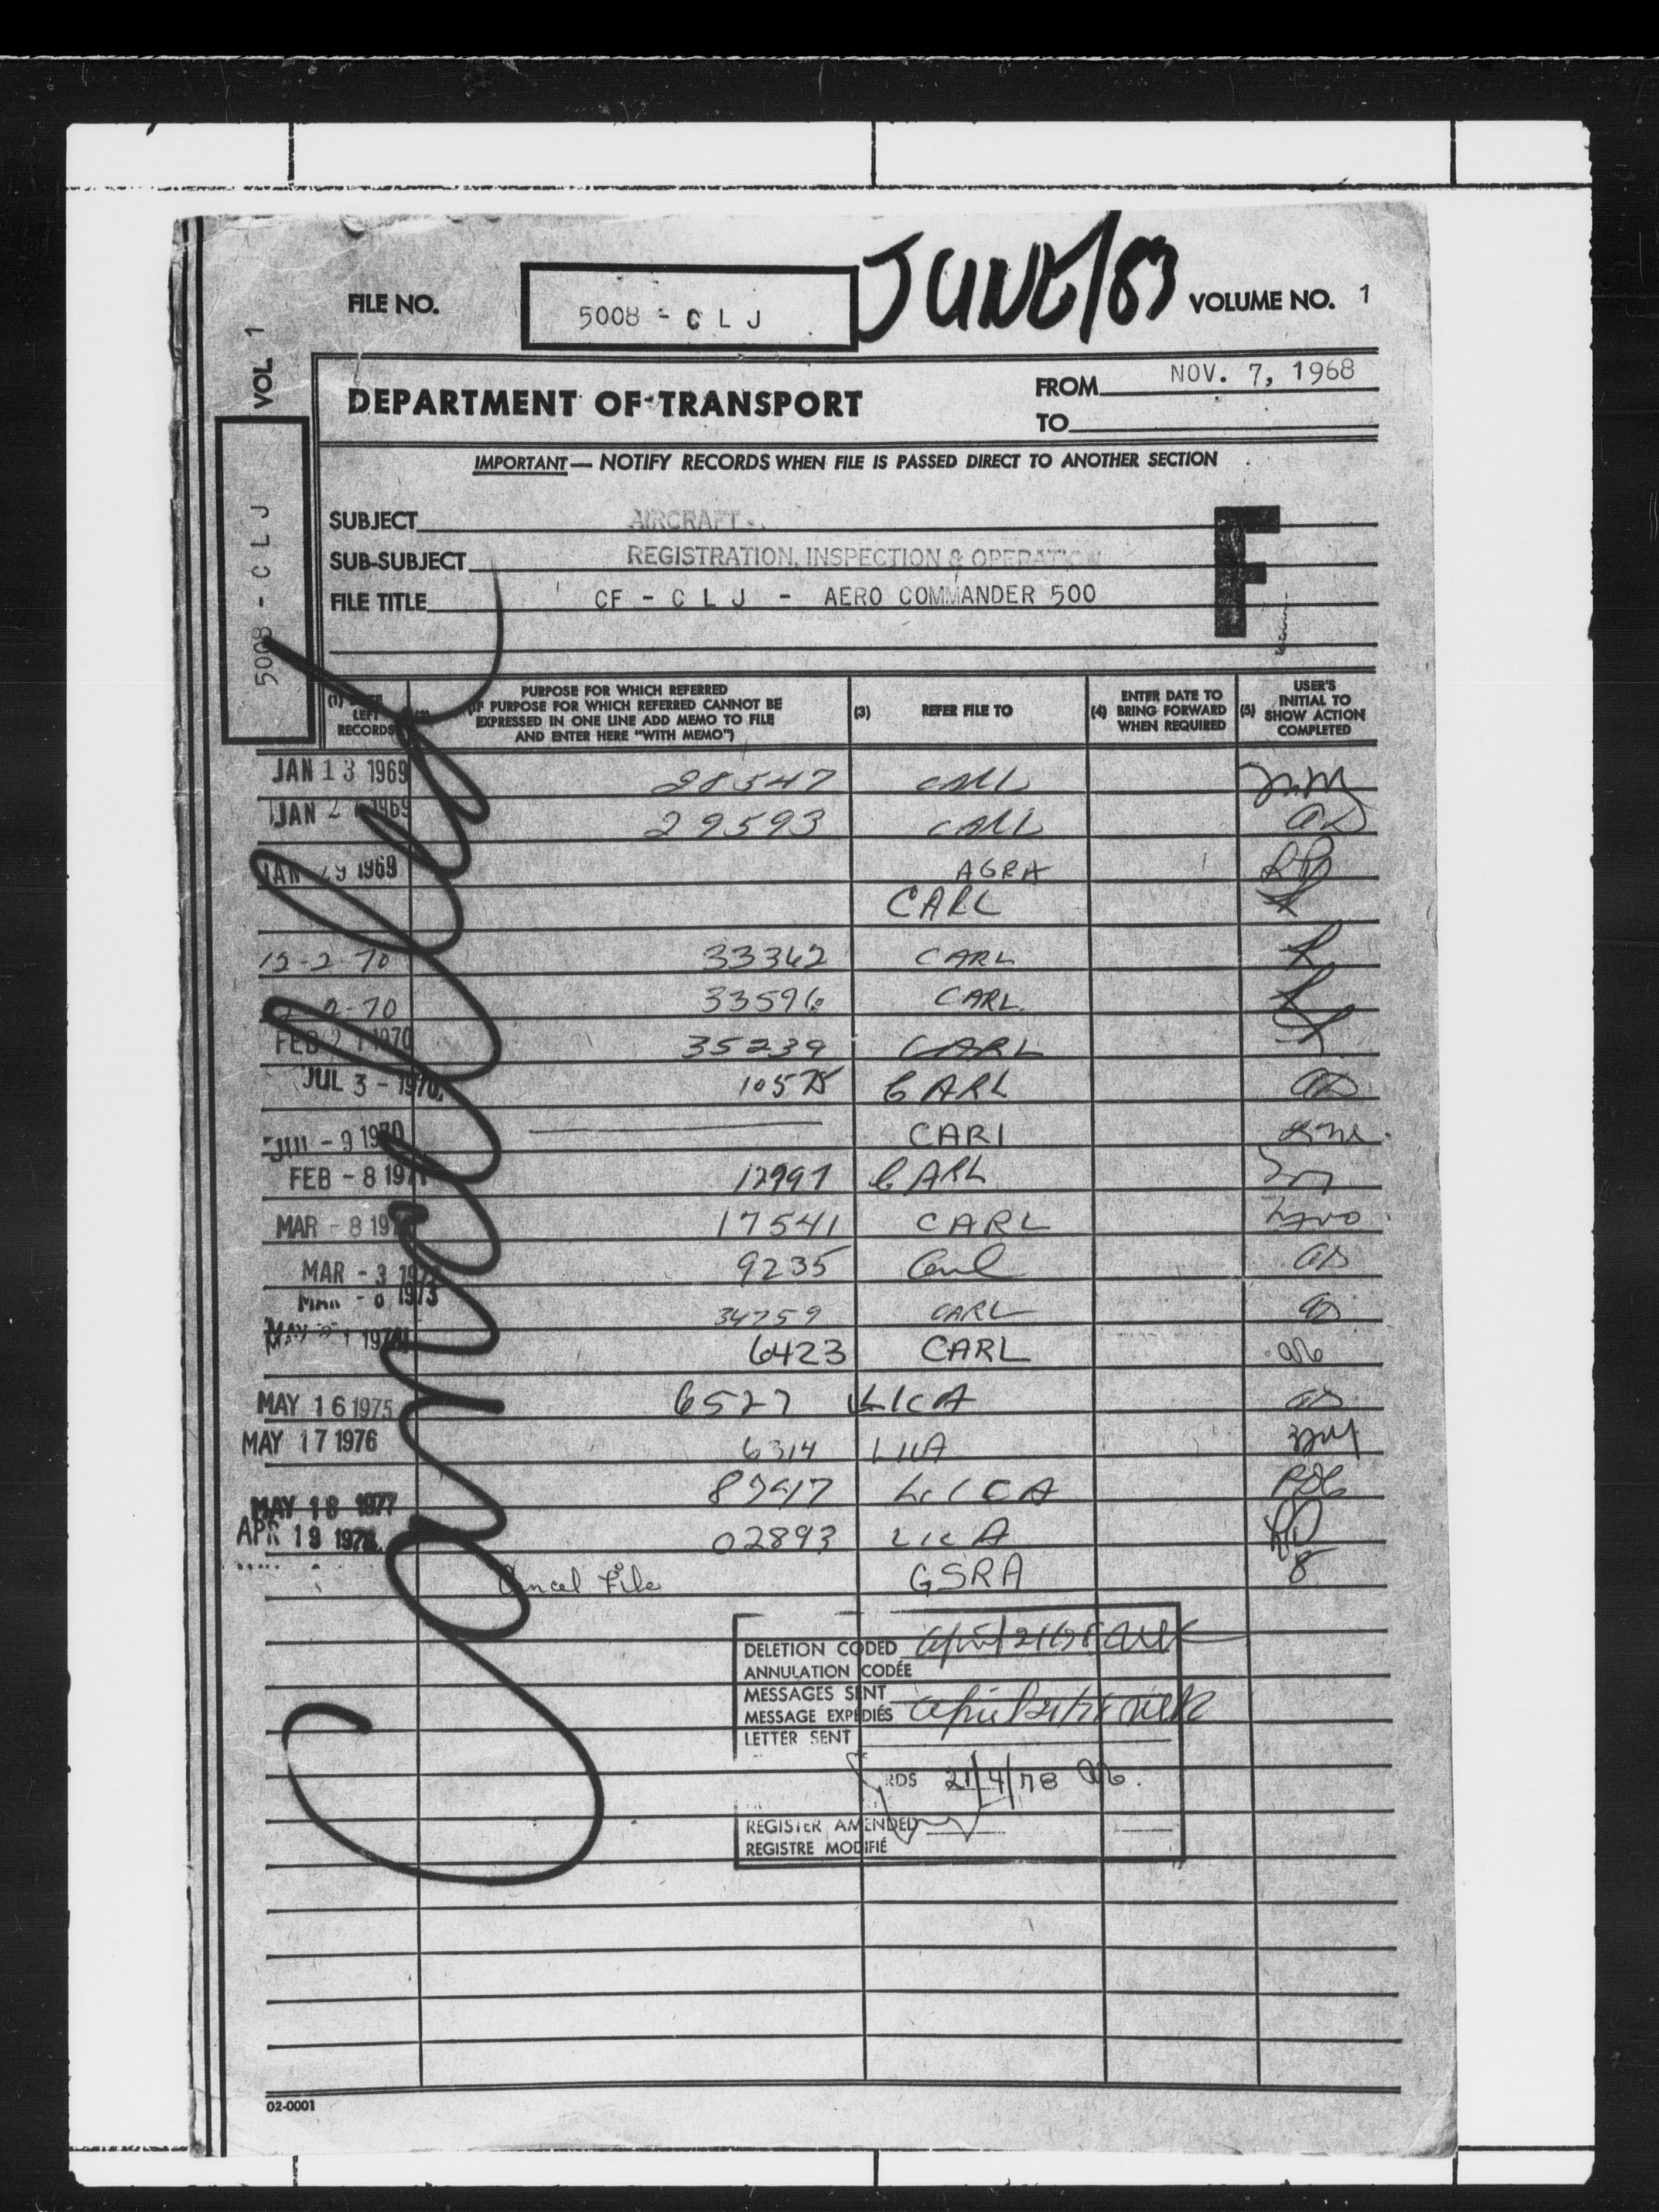 JUNE/83
FILE NO. 5008 - C L J VOLUME NO. 1
VOL. 1
5008 - C L J
DEPARTMENT OF TRANSPORT
FROM NOV. 7, 1968
TO
IMPORTANT — NOTIFY RECORDS WHEN FILE IS PASSED DIRECT TO ANOTHER SECTION
SUBJECT AIRCRAFT
SUB-SUBJECT REGISTRATION, INSPECTION & OPERATION
FILE TITLE CF - C L J - AERO COMMANDER 500
F
(1) DATE LEFT RECORDS
PURPOSE FOR WHICH REFERRED
(IF PURPOSE FOR WHICH REFERRED CANNOT BE
EXPRESSED IN ONE LINE ADD MEMO TO FILE
AND ENTER HERE "WITH MEMO")
(3) REFER FILE TO
(4) ENTER DATE TO
BRING FORWARD
WHEN REQUIRED
(5) USER'S
INITIAL TO
SHOW ACTION
COMPLETED
Cancelled
JAN 13 1969 28547 CARL
JAN 2 1969 29593 CARL
JAN 29 1969 AGRA
CARL
12-2-70 33362 CARL
2-70 33596 CARL
FEB 2 1970 35239 CARL
JUL 3 - 1970 10575 CARL
JUL - 9 1970 CARL
FEB - 8 1971 12997 CARL
MAR - 8 197 17541 CARL
MAR - 3 197 9235 Carl
MAR - 8 1973 34759 CARL
MAY 1 1974 6423 CARL
MAY 16 1975 6527 LICA
MAY 17 1976 6314 LICA
MAY 18 1977 LICA
APR 19 1978 02893 LICA
Cancel File GSRA
DELETION CODED April 21/78
ANNULATION CODÉE
MESSAGES SENT
MESSAGE EXPEDIÉS April 21/78
LETTER SENT
RDS 21/4/78
REGISTER AMENDED
REGISTRE MODIFIÉ
02-0001